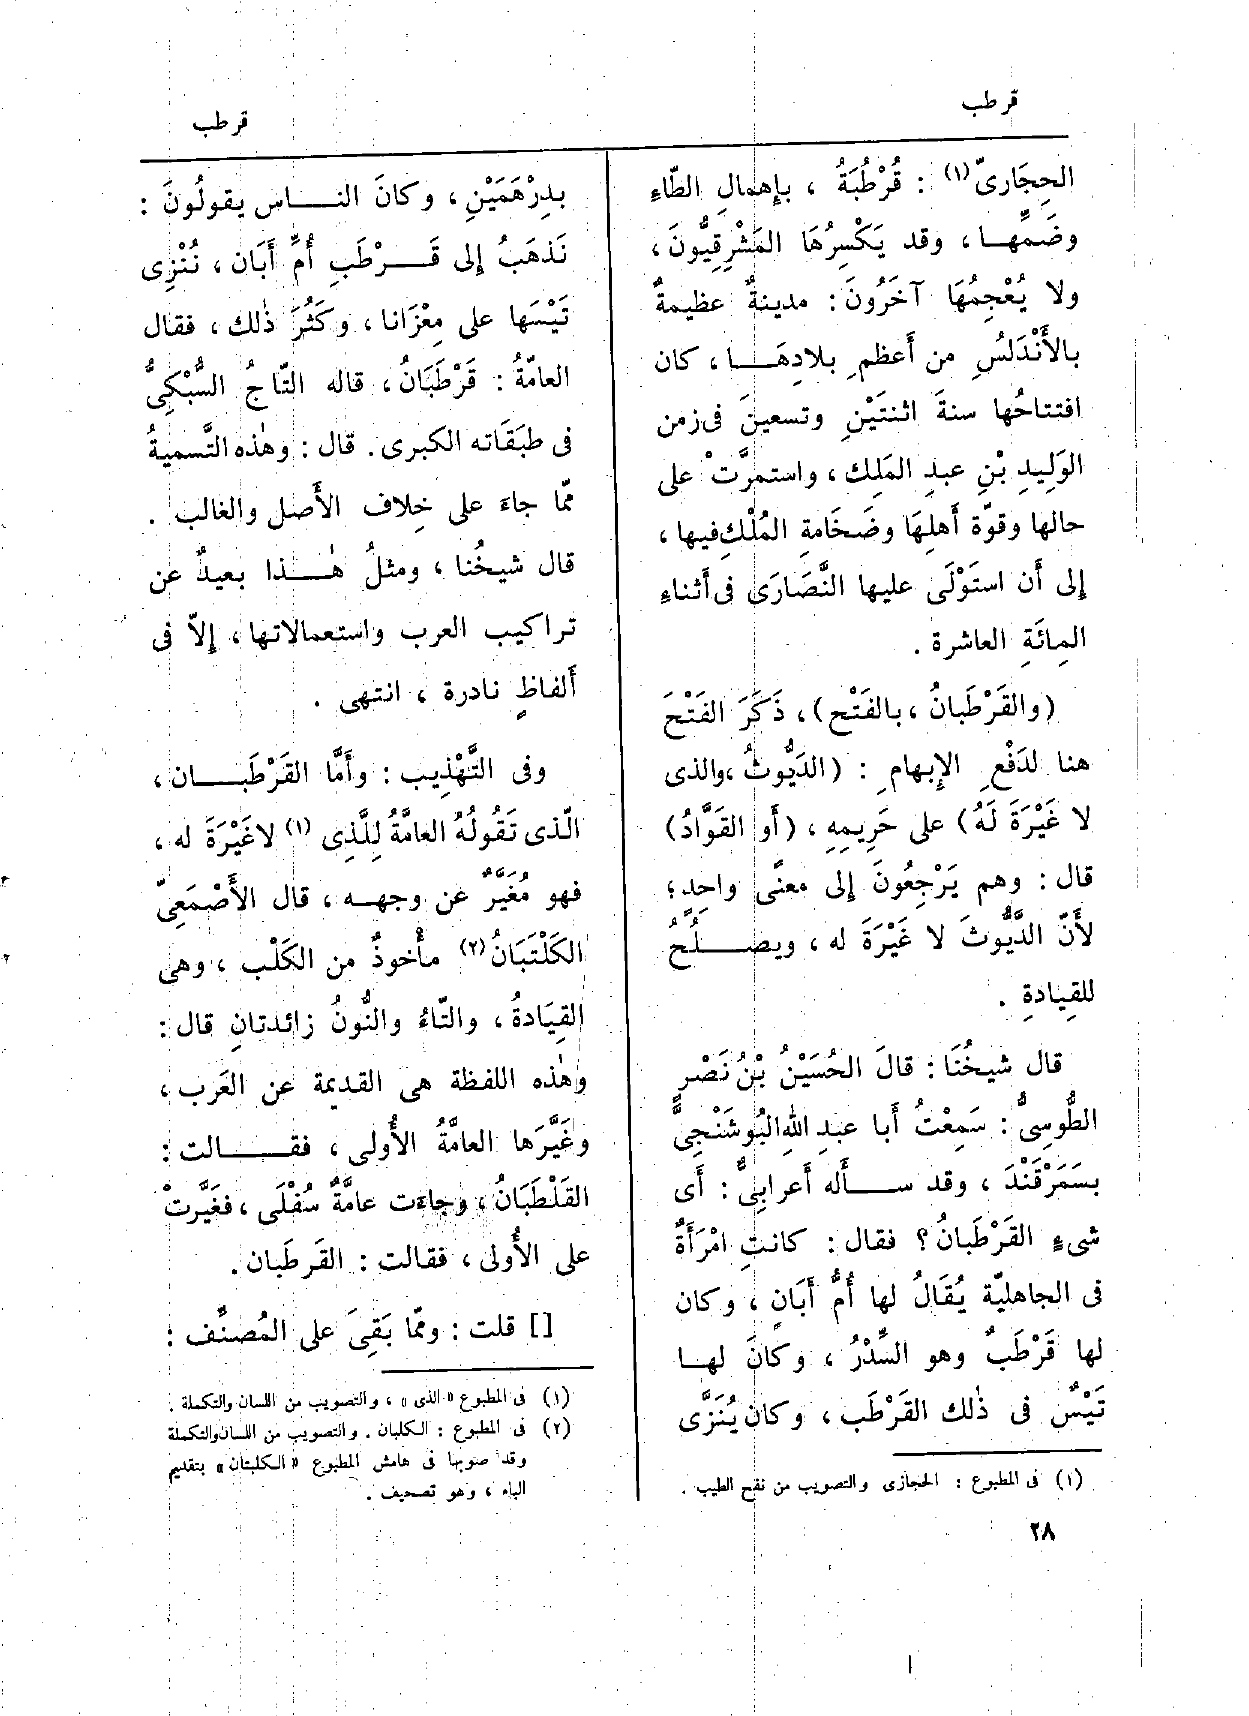 قرطب
قرطب
الحِجَارىّ (١) : قُرْطُبَةُ ، بإِهمالِ الطّاءِ
وضَمِّهـا ، وقد يَكْسِرُهَا المَشْرِقِيُّونَ ،
ولا يُعْجِمُهَا آخَرُونَ : مدينةٌ عظيمةٌ
بالأَنْدَلُسِ من أَعظمِ بلادِهَـا ، كان
افتتاحُها سنةَ اثنتَيْنِ وتسعينَ فى زمن
الوَلِيدِ بْنِ عبدِ المَلِك ، واستمرَّتْ على
حالها وقوّة أَهلِهَا وضَخَامةِ المُلْكِ فيها ،
إِلى أَن استَوْلَى عليها النَّصَارَى فى أَثناءِ
المِائَةِ العاشرة .
(والقَرْطَبانُ ، بالفَتْح) ، ذَكَرَ الفَتْحَ
هنا لدَفْعِ الإِبهامِ : (الدَيُّوثُ ، والذى
لا غَيْرَةَ لَهُ) على حَرِيمِهِ ، (أَو القَوَّادُ)
قال : وهم يَرْجِعُونَ إِلى معنًى واحِدٍ ؛
لأَنّ الدَّيُّوثَ لا غَيْرَةَ له ، ويصـلُحُ
للقِيادةِ .
قال شيخُنَا : قالَ الحُسَيْنُ بْنُ نَصْرٍ
الطُّوسِىُّ : سَمِعْتُ أَبا عبدِ اللهِ البُوشَنْجِىَّ
بسَمَرْقَنْدَ ، وقد سـأَله أَعرابِىٌّ : أَى
شىءٍ القَرْطَبانُ ؟ فقال : كانتِ امْرَأَةٌ
فى الجاهليّة يُقَالُ لها أُمُّ أَبَانٍ ، وكان
لها قَرْطَبٌ وهو السِّدْرُ ، وكانَ لهـا
تَيْسٌ فى ذٰلك القَرْطَب ، وكان يُنَزَّى
(١) فى المطبوع : الحجازى والتصويب من نفح الطيب .
٢٨
بدِرْهَمَيْنِ ، وكانَ النـاس يقولُونَ :
نَذهَبُ إِلى قَـرْطَبِ أُمِّ أَبَان ، نُنْزِى
تَيْسَها على مِعْزَانا ، وكَثُرَ ذٰلك ، فقال
العامّةُ : قَرْطَبَانُ ، قاله التّاجُ السُّبْكِىُّ
فى طبقَاته الكبرى . قال : وهٰذه التَّسميةُ
ممّا جاءَ على خِلاف الأَصل والغالب .
قال شيخُنا ، ومثلُ هٰـذا بعيدٌ عن
تراكيب العرب واستعمالاتها ، إِلاّ فى
أَلفاظٍ نادرة ، انتهى .
وفى التَّهْذِيب : وأَمَّا القَرْطَبـان ،
الّذى تَقُولُهُ العامَّةُ لِلَّذِى (١) لا غَيْرَةَ له ،
فهو مُغَيَّرٌ عن وجهـه ، قال الأَصْمَعِىّ
الكَلْتَبَانُ (٢) مأْخوذٌ من الكَلْب ، وهى
القِيَادةُ ، والتّاءُ والنُّونُ زائدتانِ قال :
وهٰذه اللفظة هى القديمة عن العَرَب ،
وغَيَّرَها العامَّةُ الأُولى ، فقـالت :
القَلْطَبَانُ ، وجاءَت عامّةٌ سُفْلَى ، فغَيَّرتْ
على الأُولى ، فقالت : القَرطَبان .
[] قلت : وممّا بَقِىَ على المُصنِّف :
(١) فى المطبوع « الذى » ، والتصويب من اللسان والتكملة .
(٢) فى المطبوع : الكلبان . والتصويب من اللسان والتكملة
وقد صوبها فى هامش المطبوع « الكلبتان » بتقديم
الباء ، وهو تصحيف .